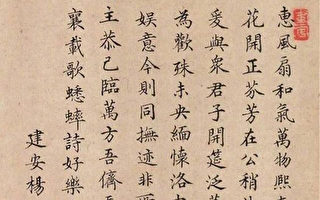 惠風扇和氣萬物熙
花開正芬芳在公稍
爰與衆君子開筵泛
為歡殊未央緬懷洛
娛意今則同撫迹非
主恭己臨萬方吾儕
襄載歌蟋蟀詩好樂
建安楊